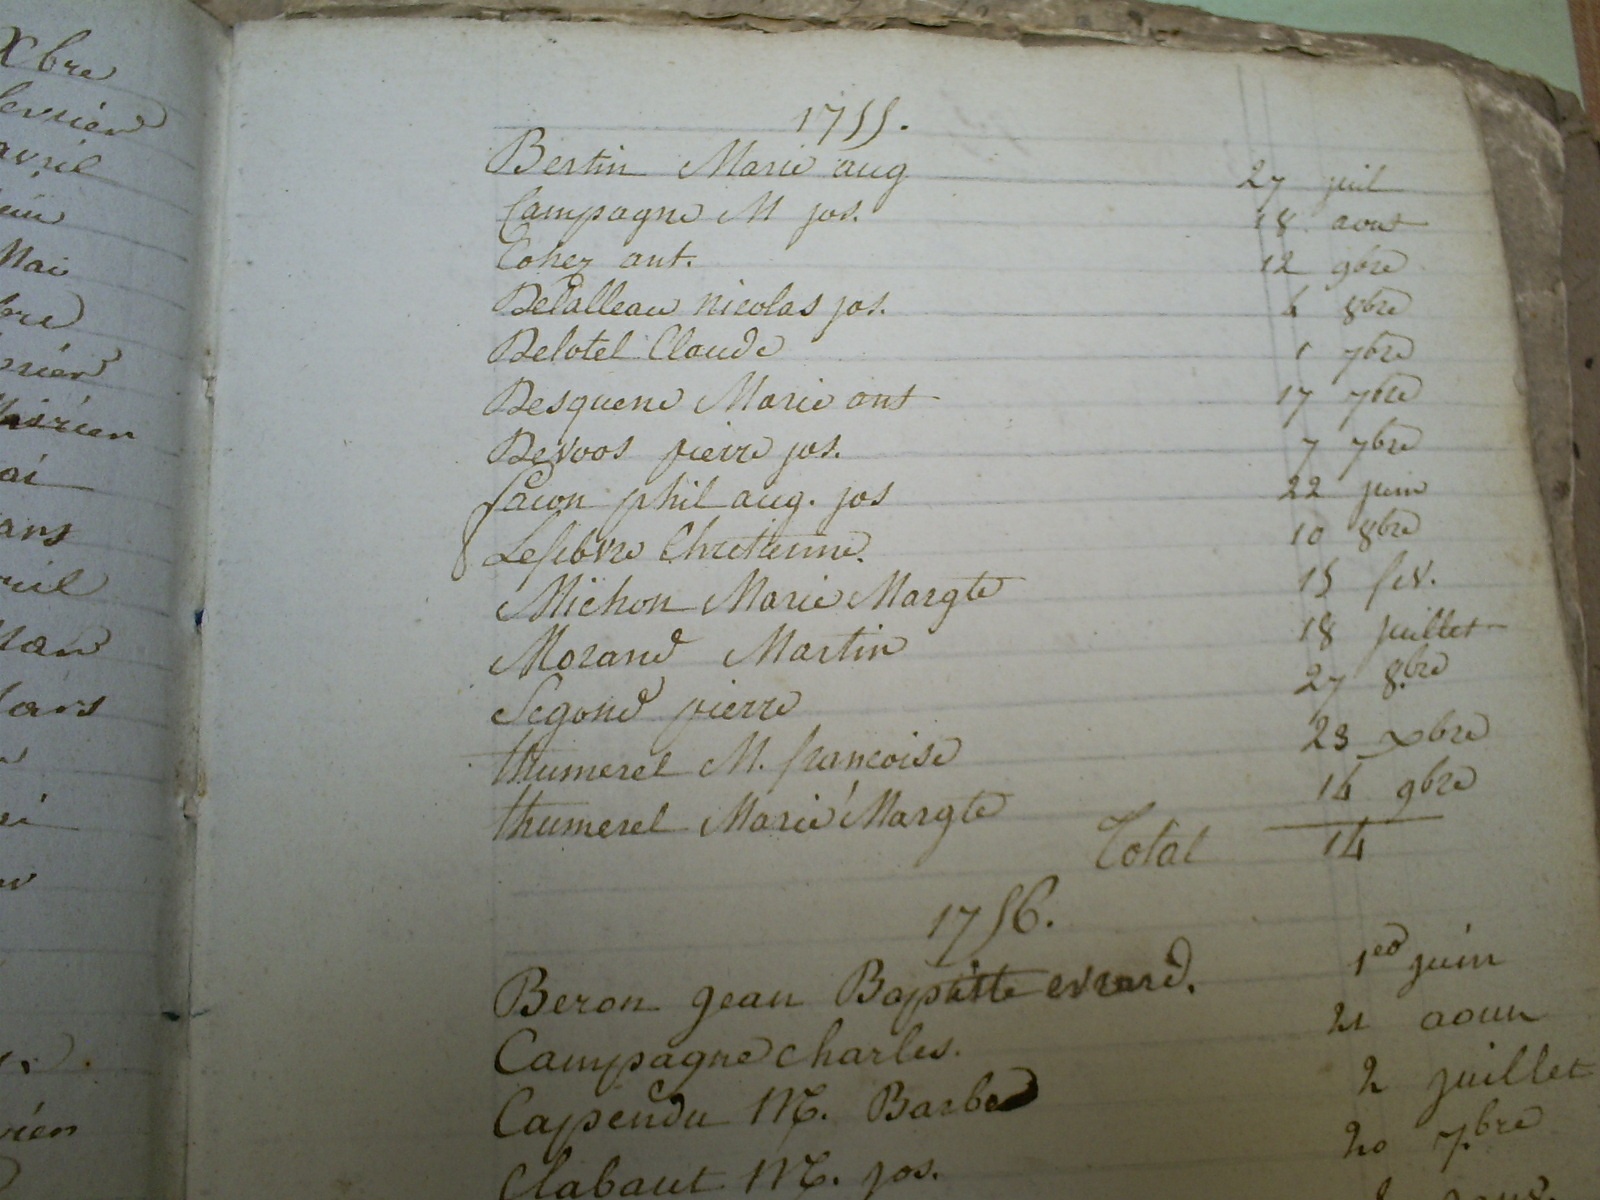 Xbre
avril
Mai
bre
ai
ars
1755.
Bertin Marie aug 27 juil
Campagne M jos. 18 aout
Cohez ant. 12 9bre
Delalleau nicolas jos. 4 8bre
Delotel Claude 1 7bre
Desquene Marie ant 17 7bre
Devoos pierre jos. 7 7bre
facon phil aug. jos 22 juin
Lefebvre Chretienne. 10 8bre
Michon Marie Margte 15 fev.
Morand Martin 18 juillet
Segond pierre 27 8bre
thumerel M. francoise 23 xbre
thumerel Marie Margte 14 9bre
Total 14
1756.
Beron jean Baptiste evrard. 1er juin
Campagne charles. 21 aout
Capendu M. Barbe 2 juillet
Clabaut M. jos. 20 7.bre